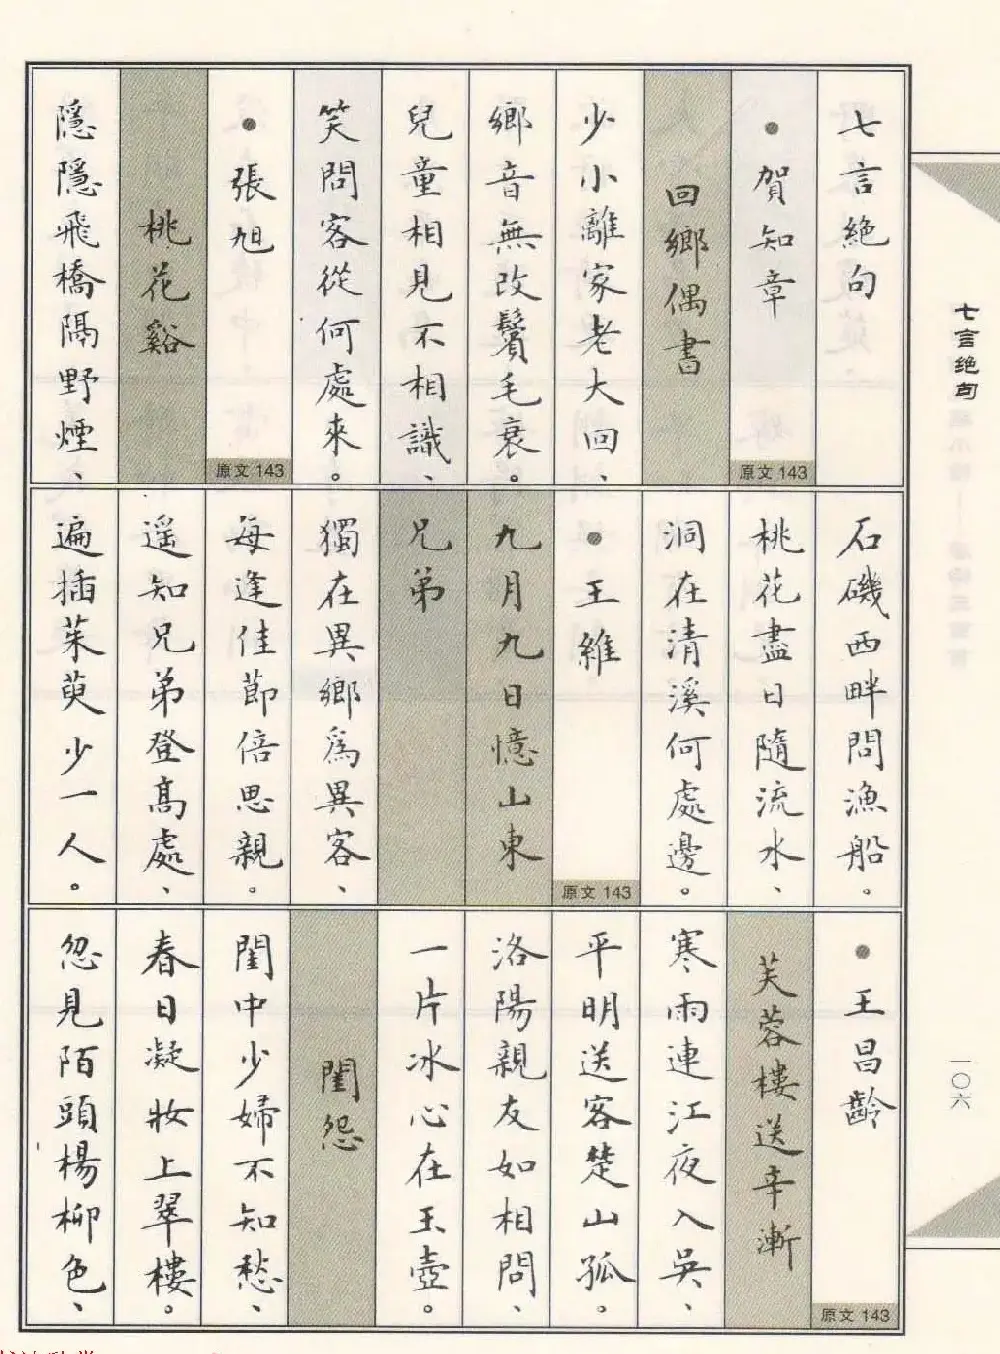 七言絶句
●賀知章
原文143
回鄉偶書
少小離家老大回、
鄉音無改鬢毛衰。
兒童相見不相識、
笑問客從何處來。
●張旭
原文143
桃花谿
隱隱飛橋隔野煙、
石磯西畔問漁船。
桃花盡日隨流水、
洞在清溪何處邊。
●王維
原文143
九月九日憶山東
兄弟
獨在異鄉爲異客、
每逢佳節倍思親。
遥知兄弟登高處、
遍插茱萸少一人。
●王昌齡
原文143
芙蓉樓送辛漸
寒雨連江夜入吳、
平明送客楚山孤。
洛陽親友如相問、
一片冰心在玉壺。
閨怨
閨中少婦不知愁、
春日凝妝上翠樓。
忽見陌頭楊柳色、
七言绝句
一〇六